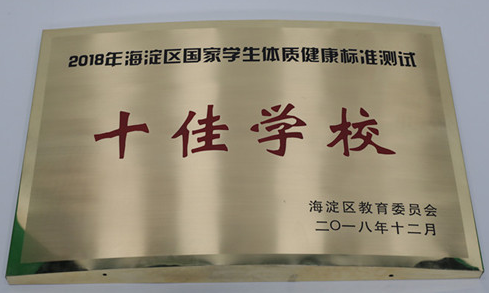 2018年海淀区国家学生体质健康标准测试
十佳学校
海淀区教育委员会
二〇一八年十二月